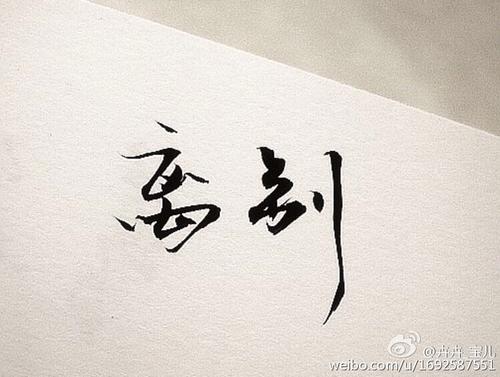 离别
@卉卉_宝儿
weibo.com/u/1692587551